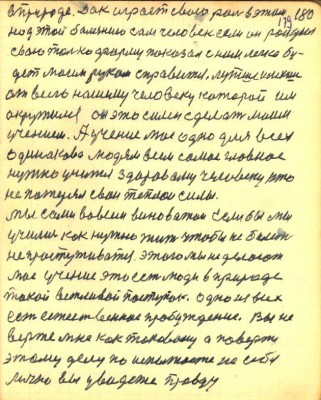 в природе. Как играет свою рол в этим, 180
179
над этой балзнию сам человек если он родился
свою только форму показал с ним легко бу-
дет моим рукам справится. лутше им
от всего нашему человеку которой им
окружил он это сили сделат моим
учением. А учение мое одно для всех
одинаково людям всем самое главное
нужно учится здоровому человеку что
не потерял свои теплои силы.
мы сами во всем виноватои Если бы мы
учили как нужно жит чтобы не болет
не простуживатся. этого мы не делаем
мое учение это ест люди в природе
такой вежливой поступок. одно из всех
ест естественное пробуждение. Вы не
верте мне как таковому а поверте
этому делу по испытаете на себя
лично вы увидете правду